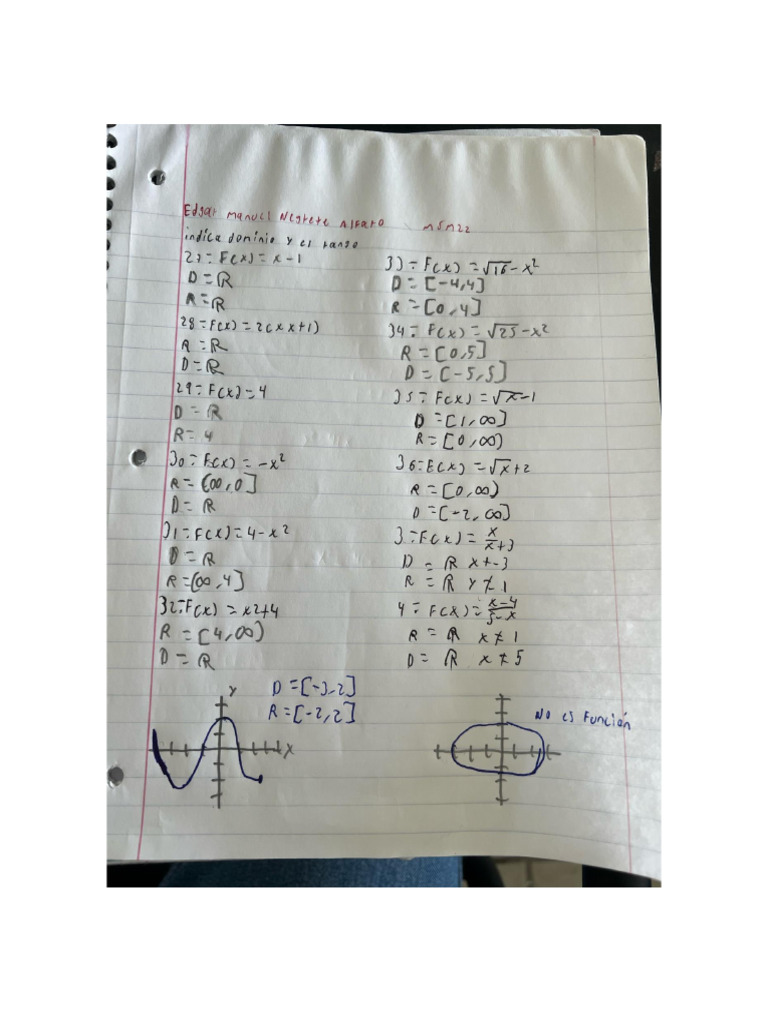 Edgar Manuel Negrete Alfaro M5M22
indica dominio y el rango
27= F(x) = x-1
D = ℝ
R = ℝ
28= F(x) = 2(x x+1)
R = ℝ
D = ℝ
29= F(x) = 4
D = ℝ
R = 4
30= F(x) = -x²
R = (∞,0]
D = ℝ
31= F(x) = 4-x²
D = ℝ
R = (∞,4]
32= F(x) = x2+4
R = [4,∞)
D = ℝ
33= F(x) = √16-x²
D = [-4,4]
R = [0,4]
34= F(x) = √25-x²
R = [0,5]
D = [-5,5]
35= F(x) = √x-1
D = [1,∞)
R = [0,∞)
36= F(x) = √x+2
R = [0,∞)
D = [-2,∞)
3= F(x) = x/x+3
D = ℝ x≠-3
R = ℝ y≠1
4= F(x) = x-4/5-x
R = ℝ x≠1
D = ℝ x≠5
y
x
D = [-3,2]
R = [-2,2]
No es Función